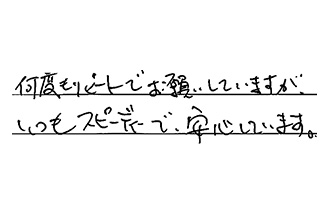 何度もリピートでお願いしていますが、
いつもスピーディーで、安心しています。